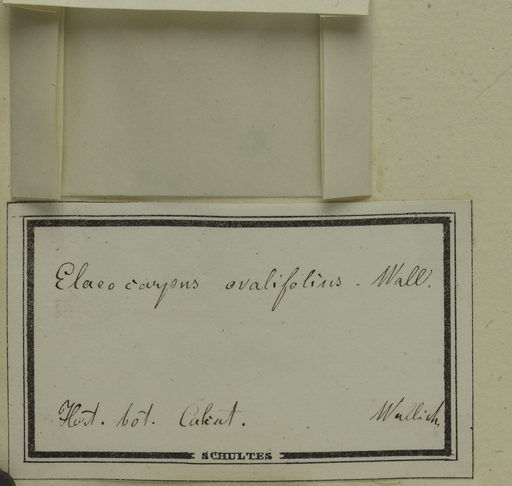 Elaeocarpus ovalifolius. Wall.
Hort. bot. Calcut. Wallich.
SCHULTES